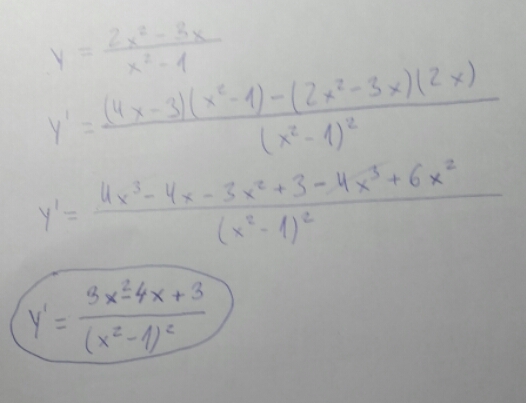 y = (2x² - 3x)/(x² - 1)
y' = ((4x - 3)(x² - 1) - (2x² - 3x)(2x))/(x² - 1)²
y' = (4x³ - 4x - 3x² + 3 - 4x³ + 6x²)/(x² - 1)²
y' = (3x² - 4x + 3)/(x² - 1)²